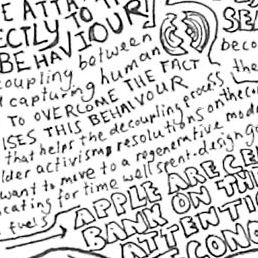 E ATTA
ECTLY TO TH
BEHAVIOUR!
SEA
coupling between
becom
d capturing human
the
TO OVERCOME THE FACT
ISES THIS BEHAIVOUR
that helps the decoupling process
older activism, resolutions on the co
want to move to a regenerative mode
cating for time well spent. design go
fuels
APPLE ARE CE
BANK ON TH
ATTENTI
CON